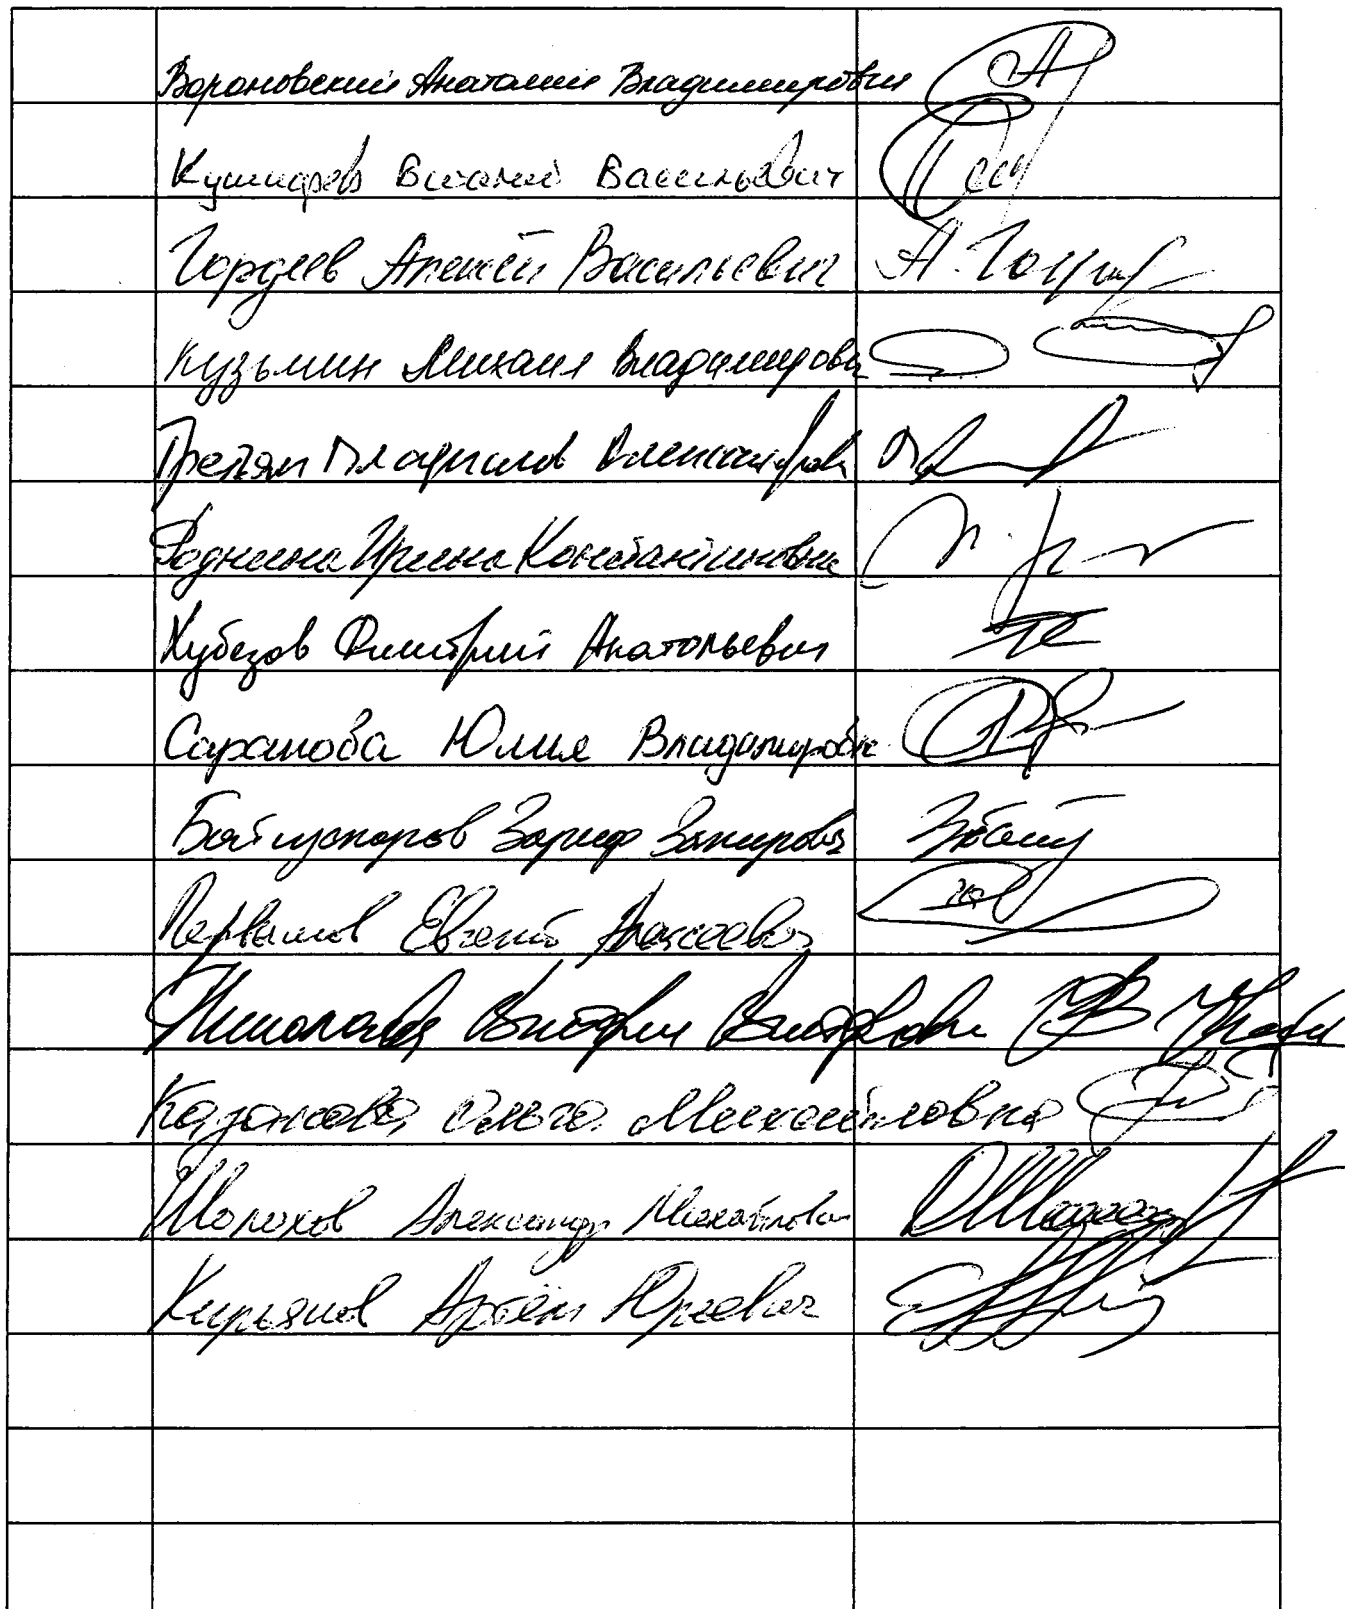 Вороновский Анатолий Владимирович
Кушнарев Виталий Васильевич
Гордеев Алексей Васильевич А. Горд
Кузьмин Михаил Владимирович
Третьяк Владислав Александрович
Роднина Ирина Константиновна
Хубезов Дмитрий Анатольевич
Саранова Юлия Владимировна
Байгускаров Зариф Закирович
Первышов Евгений Алексеевич
Виктория Викторовна
Казакова Ольга Михайловна
Шолохов Александр Михайлович
Кирьянов Артём Юрьевич